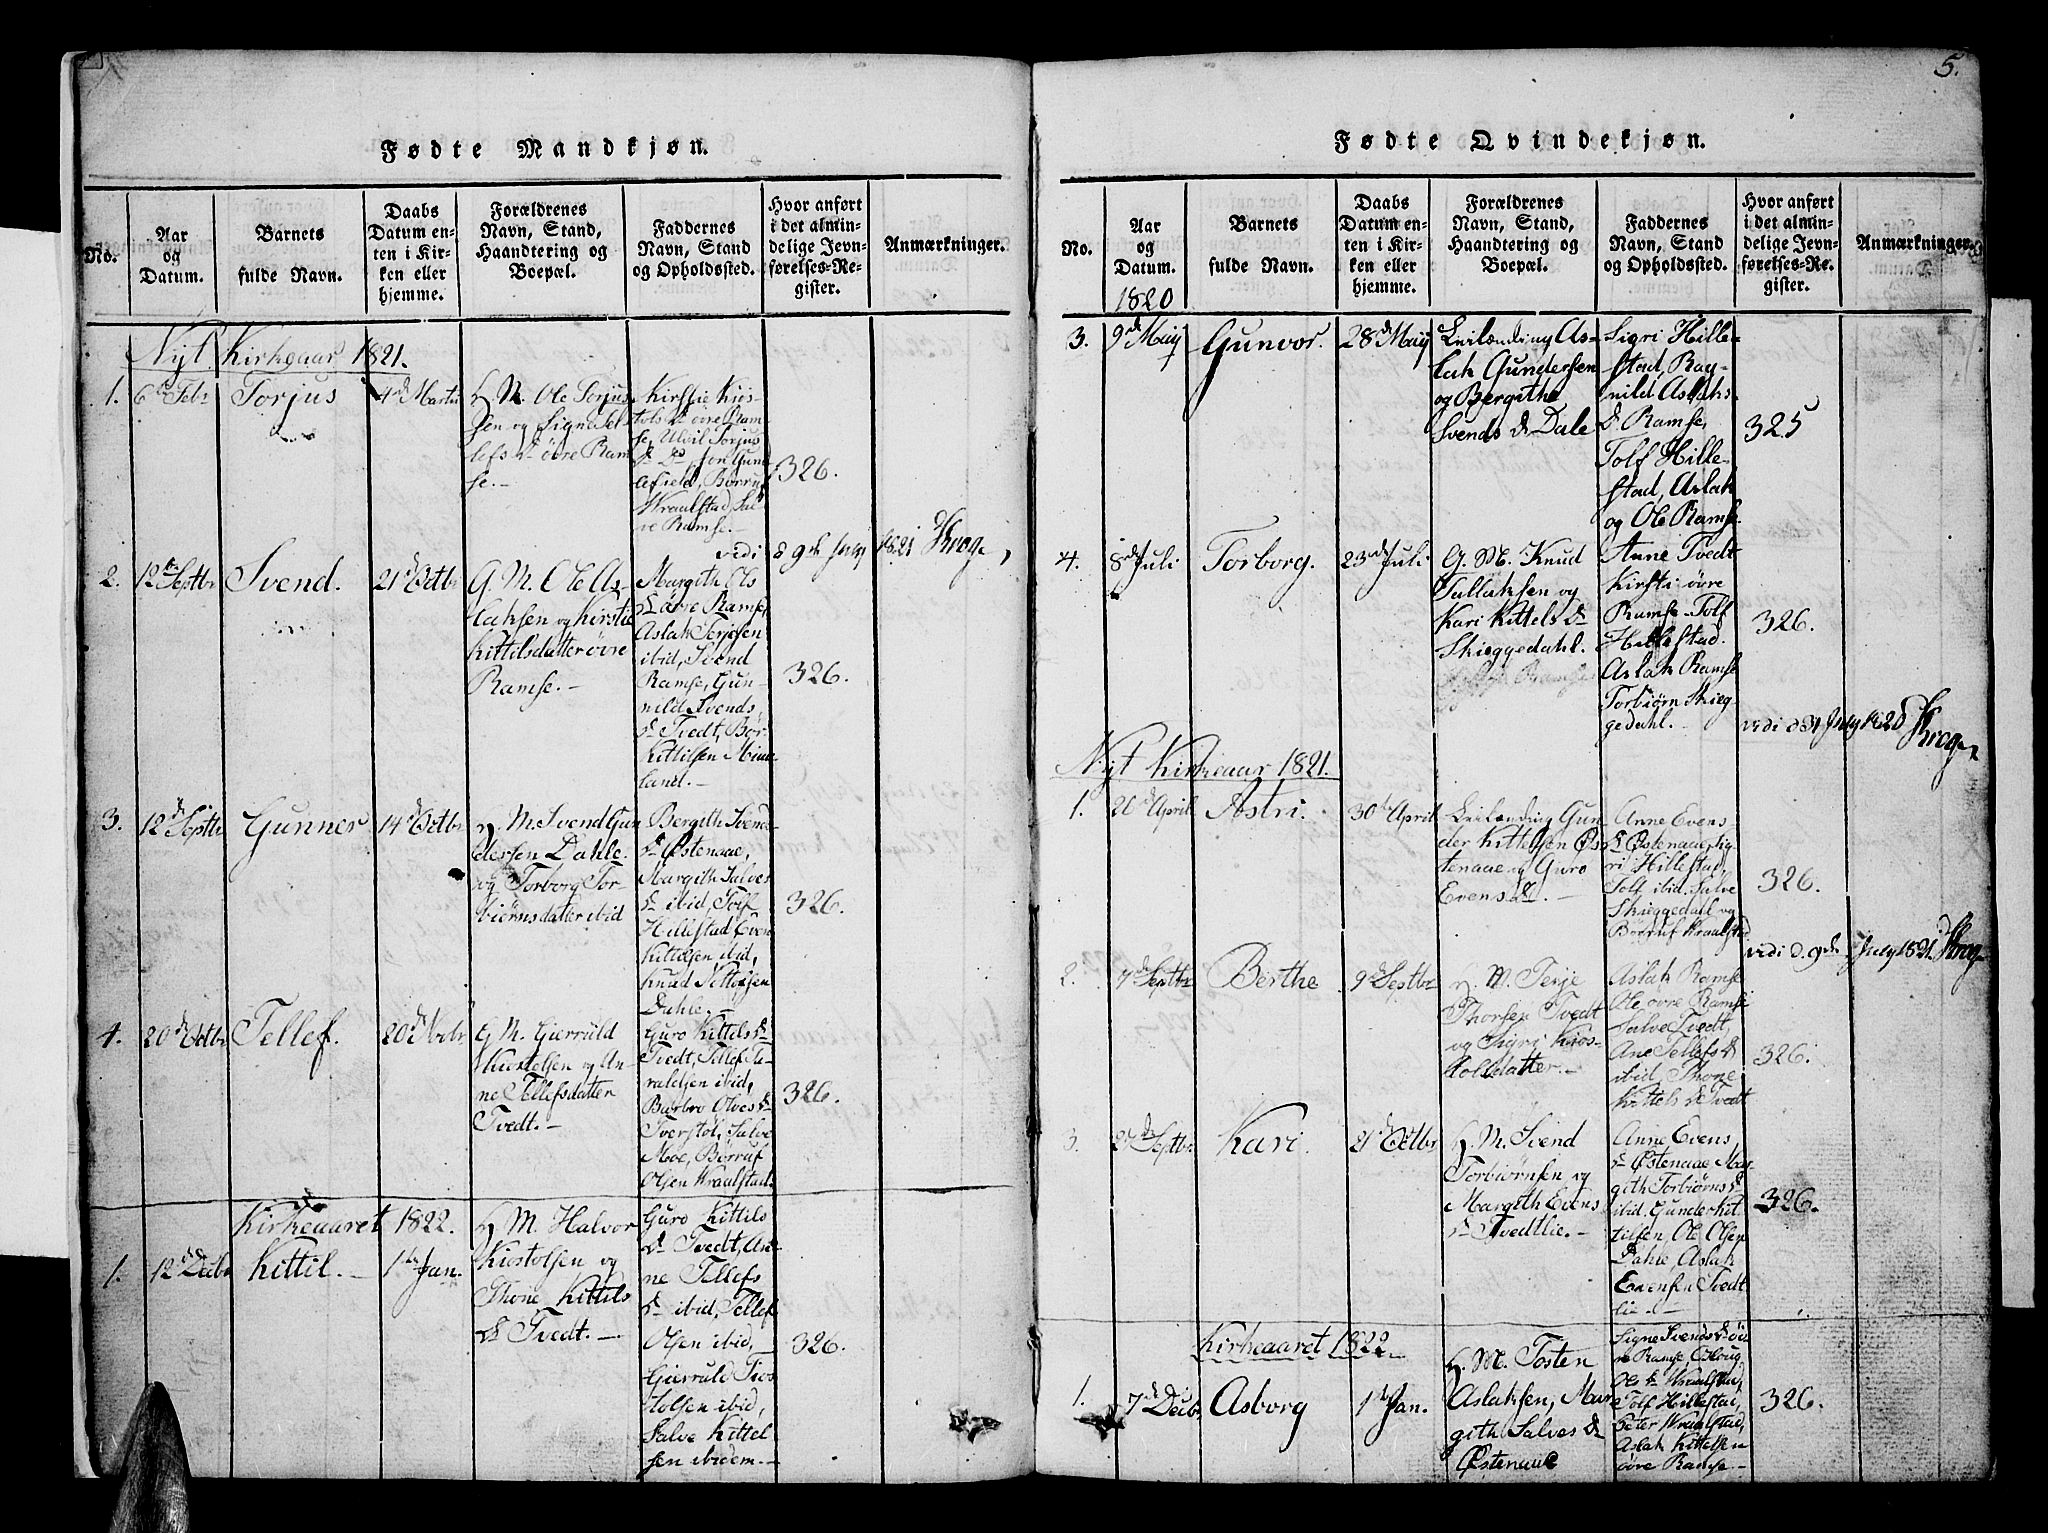 5.
Fødte Mandkjøn.
No.
Aar
og
Datum.
Barnets
fulde Navn.
Daabs
Datum en-
ten i Kir-
ken eller
hjemme.
Forældrenes
Navn, Stand,
Haandtering og
Boepæl.
Faddernes
Navn, Stand
og Opholdssted.
Hvor anført
i det almin-
delige Jevn-
førelses-Re-
gister.
Anmærkninger.
Nyt Kirkeaar 1821.
1.
6 Febr
Torjus
4de Martii
G. M. Ole Torjus
sen og Signe Tel
lefs Dr øvre Ram
se.-
Kirstie Kiøs-
tols Dr øvre Ram
se, Torjus
afield, Børruf
Wraalstad, Sal
ve Ramse.-
326.
vidi d 9de July 1821 Krog
2.
12te Septbr
Svend.
21de Octbr
G. M. Ole As
laksen og Kirstie
Kittilsdatter øvre
Ramse.-
Margith Ols
Dr øvre Ramse,
Aslak Terjesen
ibid, Svend
Ramse, Gun-
nild Svends
Dr Tvedt, Bør
Kittilsen Mime
land.-
326.
3.
12de Septbr
Gunner
14de Octbr
G. M. Svend Gun
dersen Dahle
og Torborg Tor-
biørnsdatter ibid
Bergith Svends
Dr Østenaae,
Margith Salves
Dr ibid, Tolf
Hillestad, Even
Kittilsen ibid,
Knud
Dahle.-
326.
4.
20de Octbr
Tellef.
20de Nobr
G. M. Gierruld
Kiostelsen og An-
ne Tellefsdatter
Tvedt.-
Guro Kittels Dr
Tvedt, Tellef Ge-
raldsen ibid,
Barbro Olves Dr
Tverstøl, Salve
Moe, Børruf
Olsen Wraalstad.
326.
Kirkeaaret 1822.
1.
12de Decbr
Kittil.-
1de Jan.
G. M. Halvor
Kiostolsen og
Thone Kittils
Dr Tvedt.-
Guro Kittils
Dr Tvedt, An-
ne Tellefs
Dr ibid, Tellef
Olsen ibid,
Gierruld Kios
tolsen ibid,
Salve Kittel
sen ibidem.-
326.
Fødte Qvindekjøn.
No.
Aar
og
Datum.
1820
Barnets
fulde Navn.
Daabs
Datum en-
ten i Kir-
ken eller
hjemme.
Forældrenes
Navn, Stand,
Haandtering og
Boepæl.
Faddernes
Navn, Stand
og Opholdssted.
Hvor anført
i det almin-
delige Jevn-
førelses-Re-
gister.
Anmærkninger.
3.
9de May
Gunvor.
28de May
Leilænding As-
lak Gundersen
og Bergithe
Svends Dr Dale
Sigri Hille-
stad, Rag-
nild Aslaks
Dr Ramse,
Tolf Hille-
stad, Aslak
og Ole Ramse.
325
4.
8de Juli
Torborg.
23de Juli
G. M. Knud
Tallaksen og
Kari Kittels Dr
Skieggedahl.
Anne Tvedt
Kirsti øvre
Ramse. Tolf
Hillestad.
Aslak Ramse
Torbiørn Skieg
gedahl.-
326.
vidi d 31 July 1820 Krog
Nyt Kirkeaar 1821.
1.
20de April
Astri.
30de April
Leilænding Gun
der Kittelsen Øs
tenaae og Guro
Evens Dr.-
Anne Evens-
Dr Østenaae, Sig
ri Hillestad,
Tolf ibid, Salve
Skieggedahl og
Børruf Wraalstad
326.
vidi d. 9de July 1821. Krog
2.
7de Septbr
Berthe
9de Septbr
G. M. Terje
Thorsen Tvedt
og Sigri Kios-
tolsdatter.-
Aslak Ramse
Ole øvre Ramse
Salve Tvedt,
Ane Tellefs Dr
ibid, Thone
Kittels Dr Tvedt
326.
3.
27de Septbr
Kari.
21de Octbr
G. M. Svend
Torbiørnsen og
Margith Evens
Dr Tvedtlie.-
Anne Evens,
Dr Østenaae, Mar
gith Torbiørns Dr
ibid, Gunder Kit
tilsen, Ole Olsen
Dahle, Aslak
Evensen Tvedt
lie.-
326.
Kirkeaaret 1822.
1.
7de Decbr
Asborg
1de Jan.
G. M. Tosten
Aslaksen, Mar
gith Salves Dr
Østenaae
Signe Svends Dr øv
re Ramse, Aslaug
Ols Dr Wraalstad,
Tolf Hillestad,
Peter Wraalstad,
Aslak Kittelsen
øvre Ramse-
326.